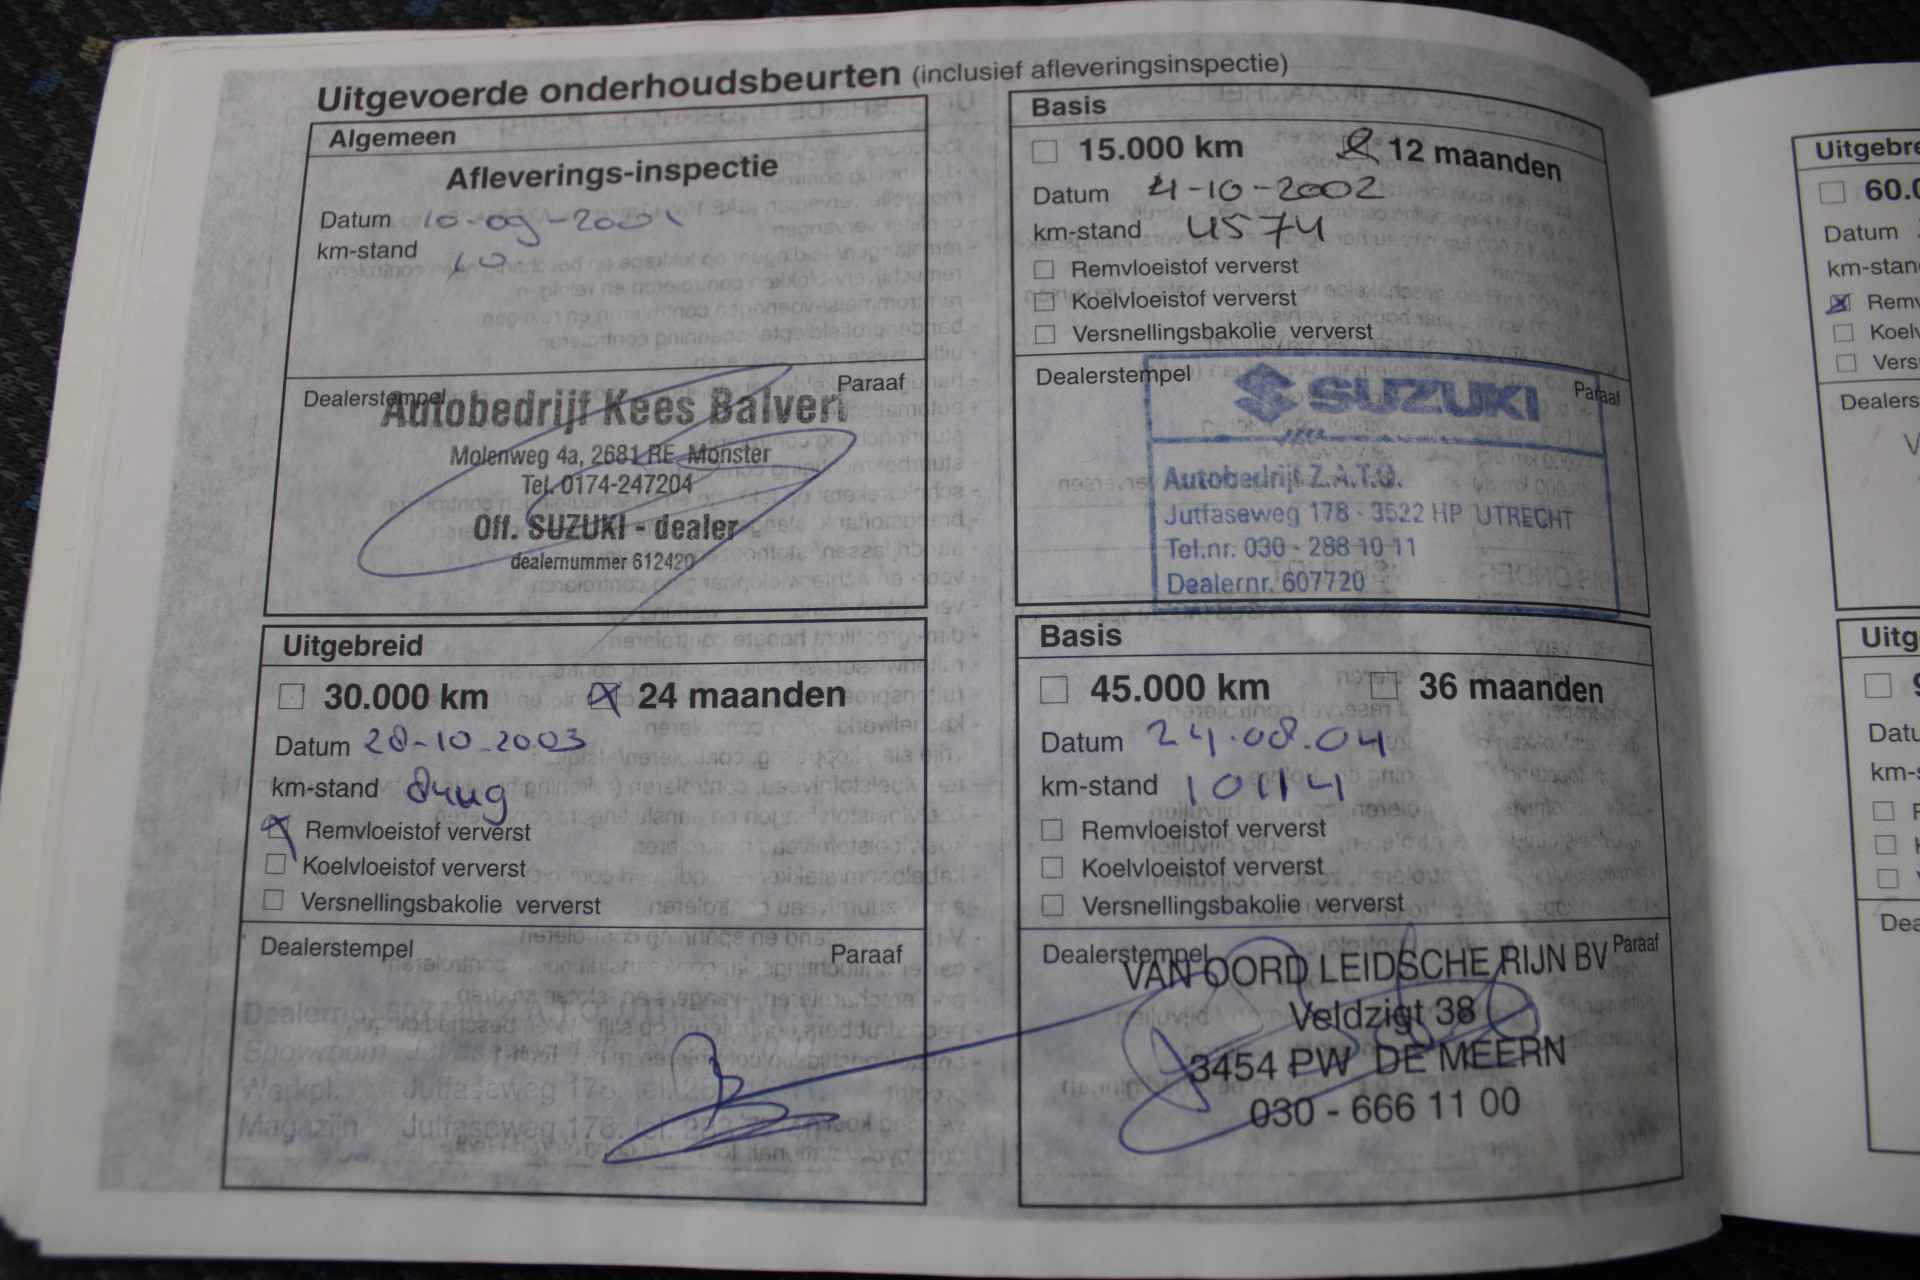 Uitgevoerde onderhoudsbeurten (inclusief afleveringsinspectie)
Algemeen
Afleverings-inspectie
Datum 10-09-2001
km-stand 10
Dealerstempel
Paraaf
Autobedrijf Kees Balven
Molenweg 4a, 2681 RE Monster
Tel. 0174-247204
Off. SUZUKI - dealer
dealernummer 612420
Basis
15.000 km 12 maanden
Datum 4-10-2002
km-stand 4574
Remvloeistof ververst
Koelvloeistof ververst
Versnellingsbakolie ververst
Dealerstempel
Paraaf
SUZUKI
Autobedrijf Z.A.T.O.
Jutfaseweg 178 - 3522 HP UTRECHT
Tel.nr. 030 - 288 10 11
Dealernr. 607720
Uitgebreid
30.000 km 24 maanden
Datum 28-10-2003
km-stand
Remvloeistof ververst
Koelvloeistof ververst
Versnellingsbakolie ververst
Dealerstempel
Paraaf
Dealernr.
Showroom
Werkpl. Jutfaseweg 178, tel.
Magazijn Jutfaseweg 178, tel.
Basis
45.000 km 36 maanden
Datum 24.08.04
km-stand 10114
Remvloeistof ververst
Koelvloeistof ververst
Versnellingsbakolie ververst
Dealerstempel
Paraaf
VAN OORD LEIDSCHE RIJN BV
Veldzigt 38
3454 PW DE MEERN
030 - 666 11 00
Uitgebre
60.0
Datum
km-stan
Remv
Koelv
Vers
Dealers
Uitg
9
Datu
km-s
Dea